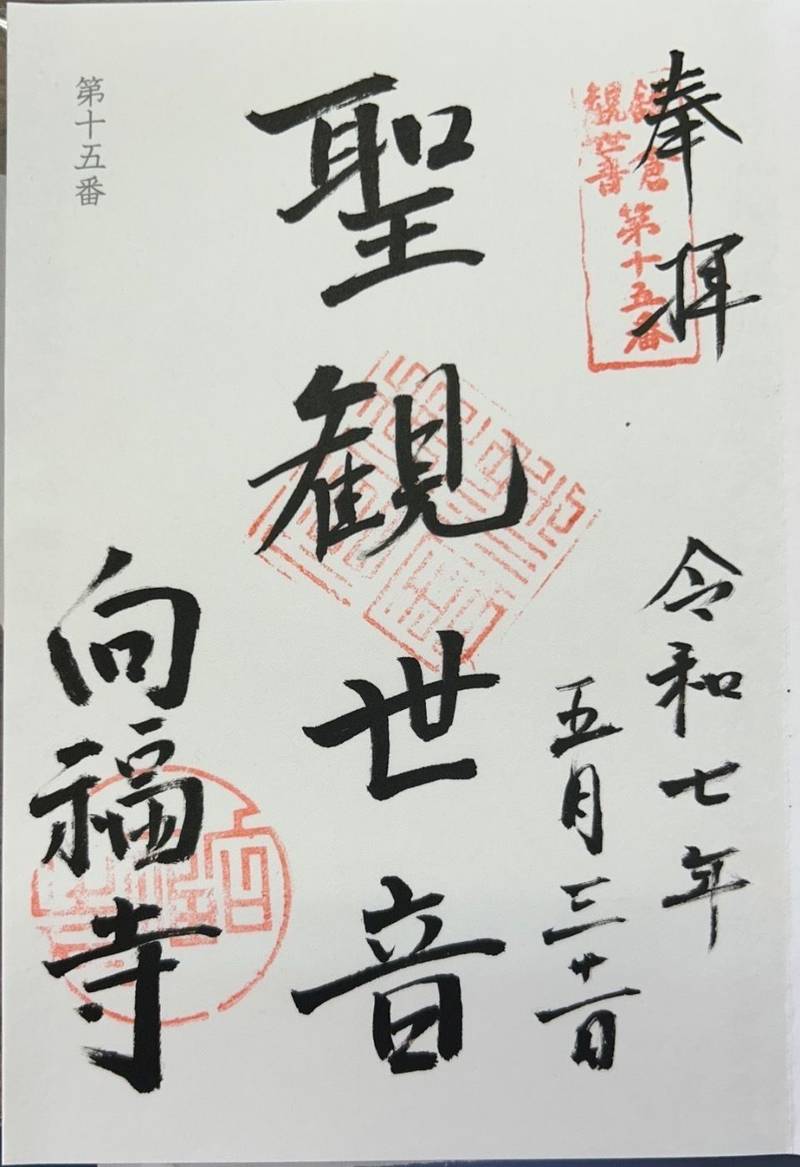 奉拝
鎌倉
観世音
第十五番
令和七年
五月三十一日
聖観世音
向福寺
第十五番